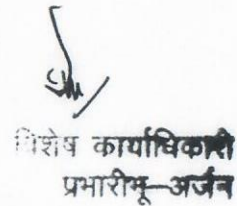 विशेष कार्याधिकारी
प्रभारीभू—अर्जन